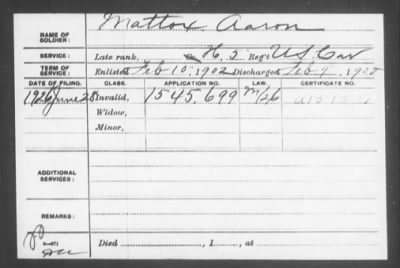 NAME OF SOLDIER: Mattox Aaron
SERVICE: Late rank, H, 5 Reg't US Cav
TERM OF SERVICE: Enlisted Feb 10, 1902 Discharged Feb 9, 1905
DATE OF FILING. CLASS. APPLICATION NO. LAW. CERTIFICATE NO.
1926 June 28 Invalid, 1545.699
Widow,
Minor,
ADDITIONAL SERVICES:
REMARKS:
Died , 1 , at